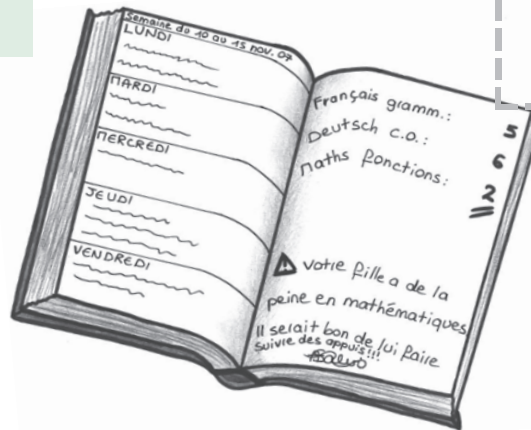 Semaine du 10 au 15 nov. 07
LUNDI
MARDI
MERCREDI
JEUDI
VENDREDI
Français gramm.: 5
Deutsch c.o.: 6
maths fonctions: 2
votre fille a de la
peine en mathématiques
Il serait bon de lui faire
suivre des appuis!!!